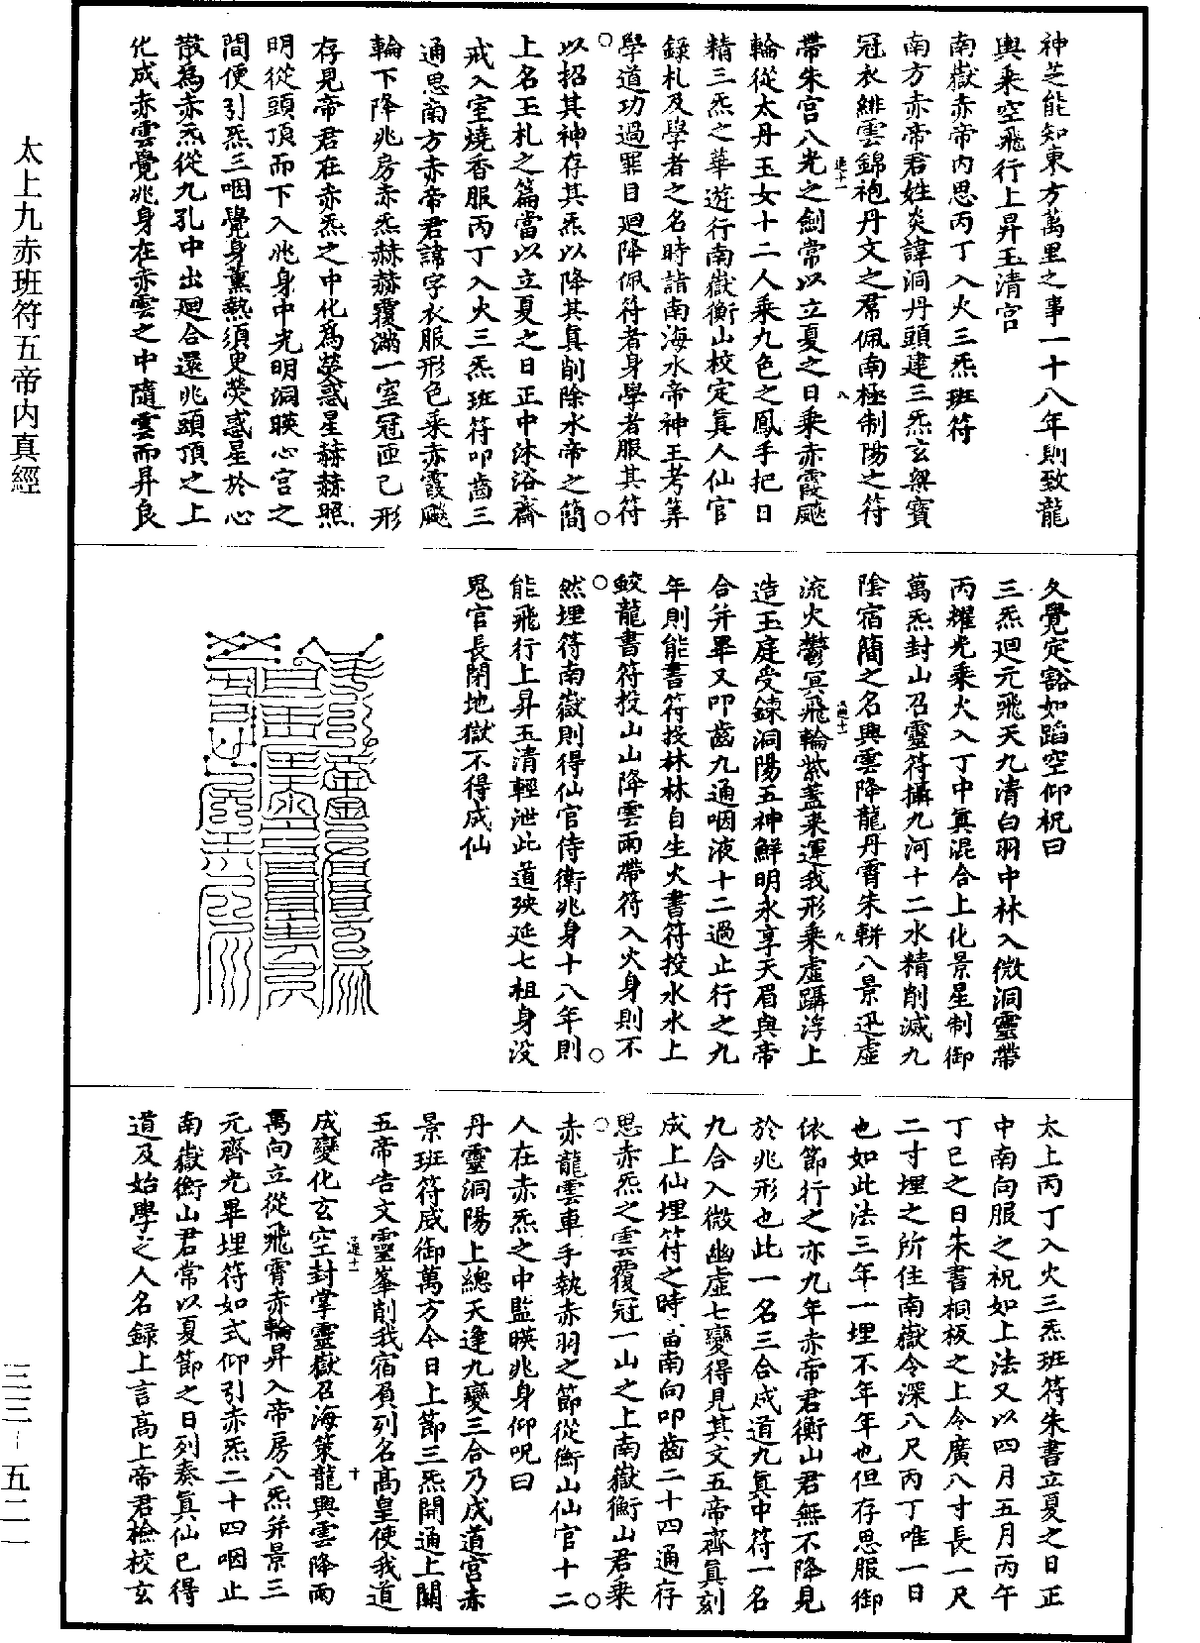 太上九赤班符五帝内真經
三三—五二一
神芝能知東方萬里之事一十八年則致龍
輿乘空飛行上昇玉清宫
南嶽赤帝内思丙丁入火三炁班符
南方赤帝君姓炎諱洞丹頭建三炁玄舉寶
冠衣緋雲錦袍丹文之帬佩南極制陽之符
帶朱宫八光之劍常以立夏之日乘赤霞飈
輪從太丹玉女十二人乘九色之鳳手把日
精三炁之華遊行南嶽衡山校定真人仙官
録札及學者之名時詣南海水帝神王考筭
學道功過罪目廻降佩符者身學者服其符
以招其神存其炁以降其真削除水帝之簡
上名玉札之篇當以立夏之日正中沐浴齋
戒入室燒香服丙丁入火三炁班符叩齒三
通思南方赤帝君諱字衣服形色乘赤霞飈
輪下降兆房赤炁赫赫覆滿一室冠匝己形
存見帝君在赤炁之中化爲熒惑星赫赫照
明從頭頂而下入兆身中光明洞暎心宫之
間便引炁三咽覺身薰熱須臾熒惑星於心
散爲赤炁從九孔中出廻合還兆頭頂之上
化成赤雲覺兆身在赤雲之中隨雲而昇良
久覺定豁如蹈空仰祝曰
三炁廻元飛天九清白羽中林入微洞靈帶
丙耀光乘火入丁中真混合上化景星制御
萬炁封山召靈符攝九河十二水精削滅九
陰宿簡之名興雲降龍丹霄朱軿八景迅虚
流火鬱冥飛輪紫蓋來運我形乘虚躡浮上
造玉庭受鍊洞陽五神鮮明永享天眉與帝
合并畢又叩齒九通咽液十二過止行之九
年則能書符投林林自生火書符投水水上
鮫龍書符投山山降雲雨帶符入火身則不
然埋符南嶽則得仙官侍衛兆身十八年則
能飛行上昇玉清輕泄此道殃延七祖身没
鬼官長閉地獄不得成仙
太上丙丁入火三炁班符朱書立夏之日正
中南向服之祝如上法又以四月五月丙午
丁巳之日朱書桐板之上令廣八寸長一尺
二寸埋之所住南嶽令深八尺丙丁唯一日
也如此法三年一埋不年年也但存思服御
依節行之亦九年赤帝君衡山君無不降見
於兆形也此一名三合成道九真中符一名
九合入微幽虚七變得見其文五帝齊真刻
成上仙埋符之時當南向叩齒二十四通存
思赤炁之雲覆冠一山之上南嶽衡山君乘
赤龍雲車手執赤羽之節從衡山仙官十二
人在赤炁之中監暎兆身仰呪曰
丹靈洞陽上總天逢九變三合乃成道宫赤
景班符威御萬方今日上節三炁開通上關
五帝告文靈峯削我宿負列名髙皇使我道
成變化玄空封掌靈嶽召海策龍興雲降雨
萬向立從飛霄赤輪昇入帝房八炁并景三
元齊光畢埋符如式仰引赤炁二十四咽止
南嶽衡山君常以夏節之日列奏真仙已得
道及始學之人名録上言髙上帝君檢校玄